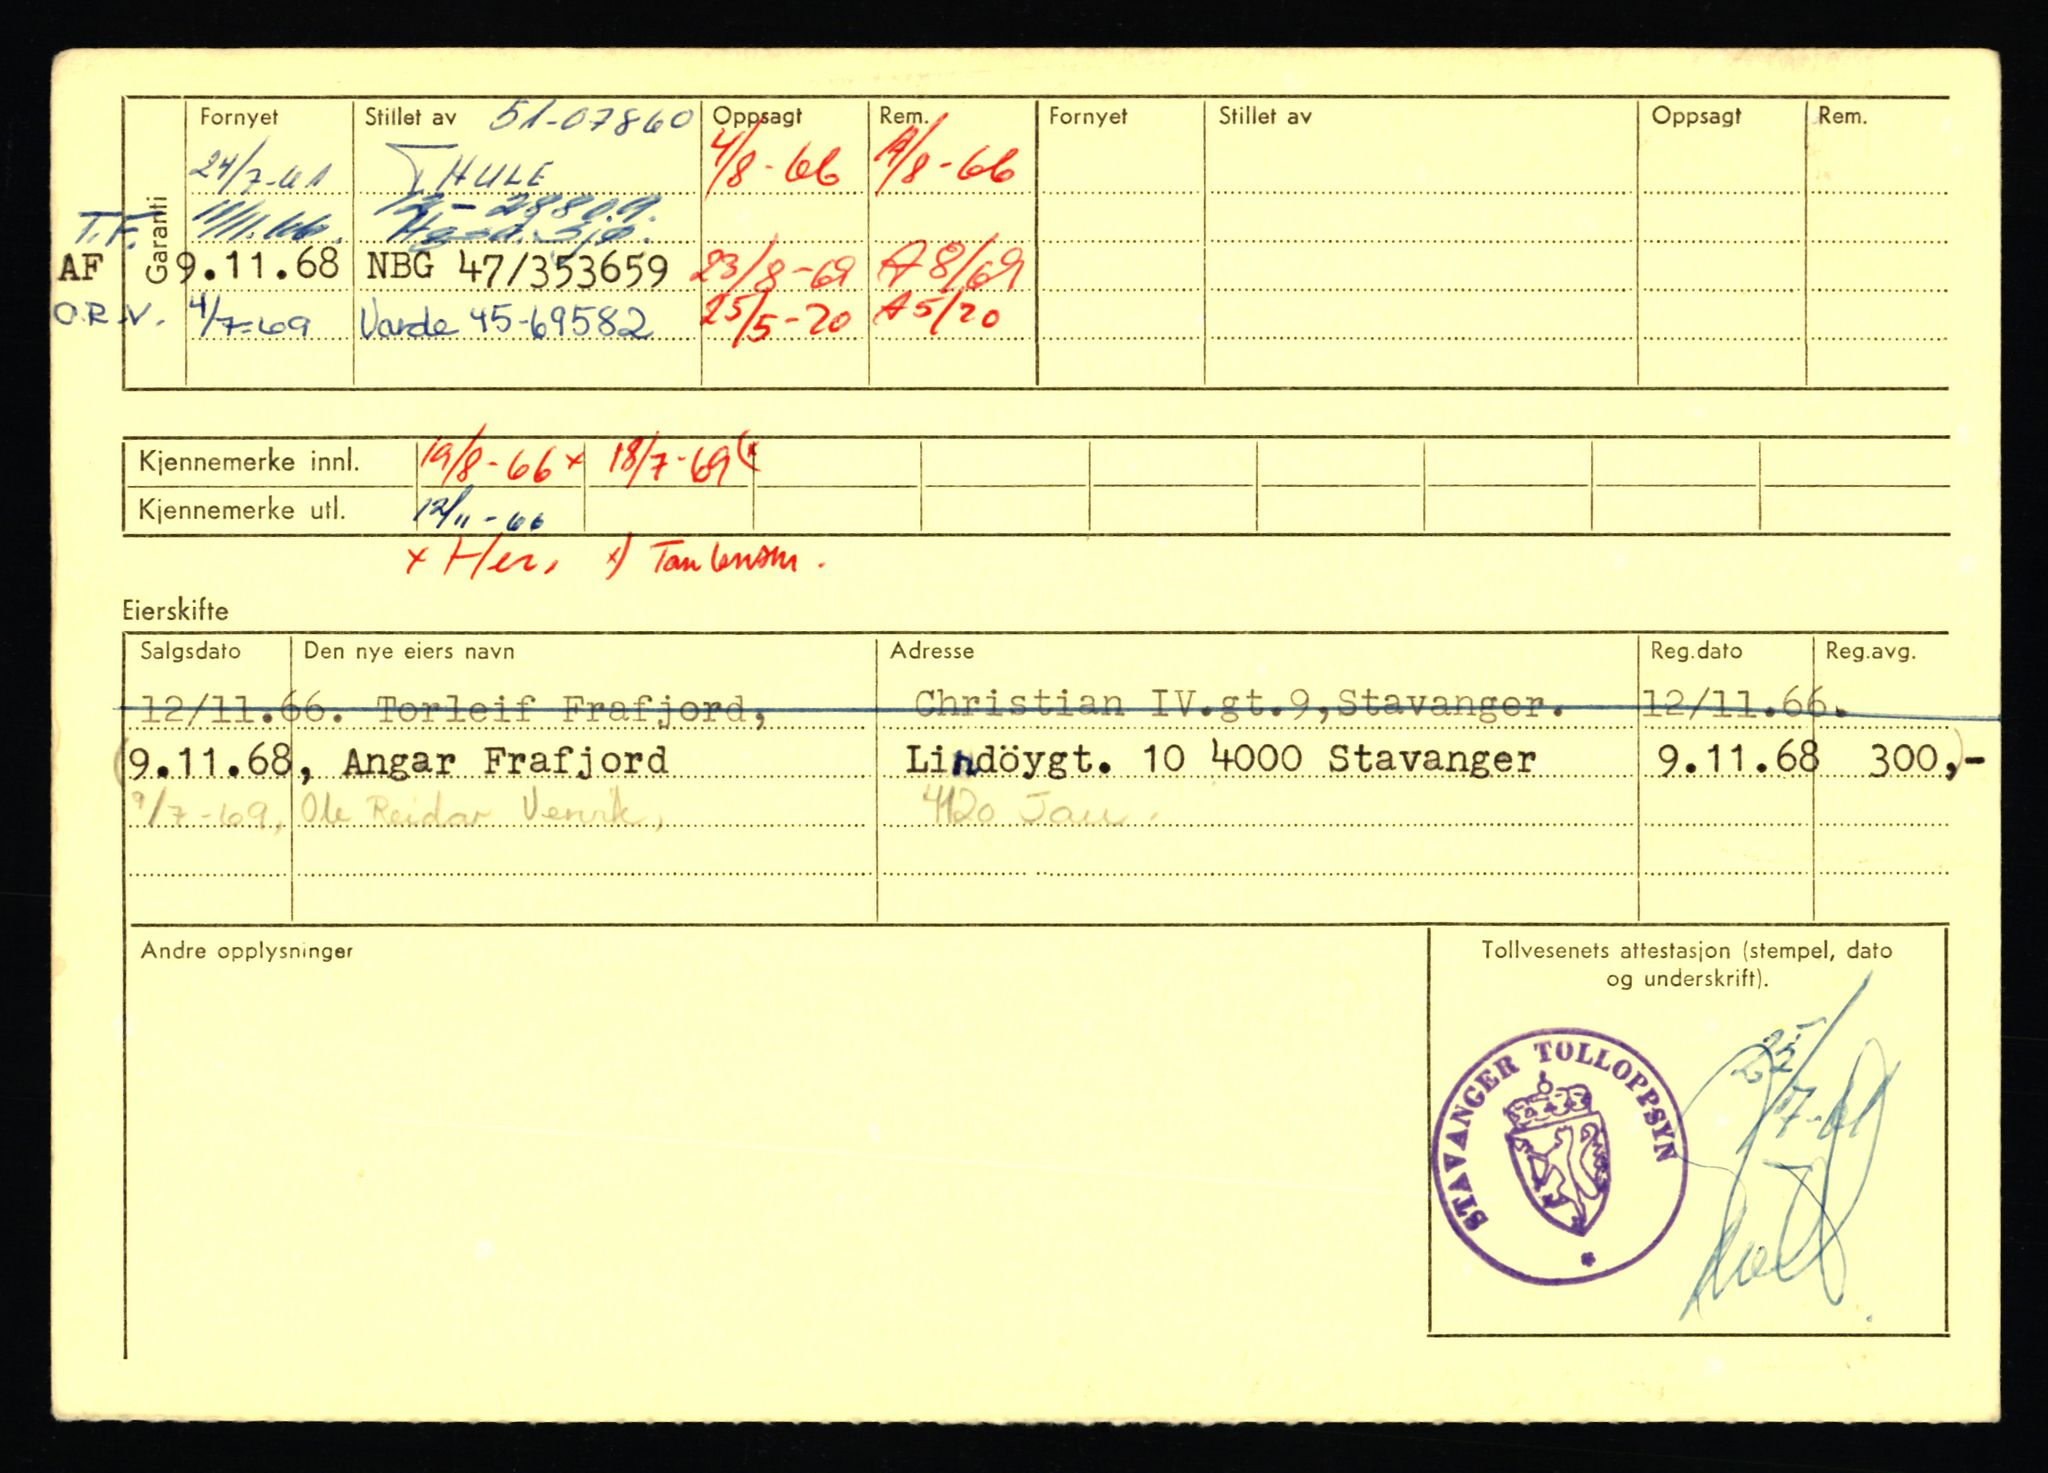 Fornyet Stillet av 51-07860 Oppsagt Rem. Fornyet Stillet av Oppsagt Rem.
Garanti
24/7-61 THULE 4/8-66 A/8-66
T.F. 11/11.66.
AF 9.11.68 NBG 47/353659 23/8-69 A 8/69
O.R.V. 4/7-69 Varde 45-69582 25/5-70 A5/70
Kjennemerke innl. 19/8-66 x 18/7-69 (x
Kjennemerke utl. 12/11-66
x Her, x)
Eierskifte
Salgsdato Den nye eiers navn Adresse Reg.dato Reg.avg.
12/11.66. Torleif Frafjord, Christian IV.gt.9,Stavanger. 12/11.66.
(9.11.68, Angar Frafjord Lindöygt. 10 4000 Stavanger 9.11.68 300,-)
9/7-69, Ole Reidar 4120 Tau.
Andre opplysninger
Tollvesenets attestasjon (stempel, dato
og underskrift).
STAVANGER TOLLOPPSYN
25/7-61